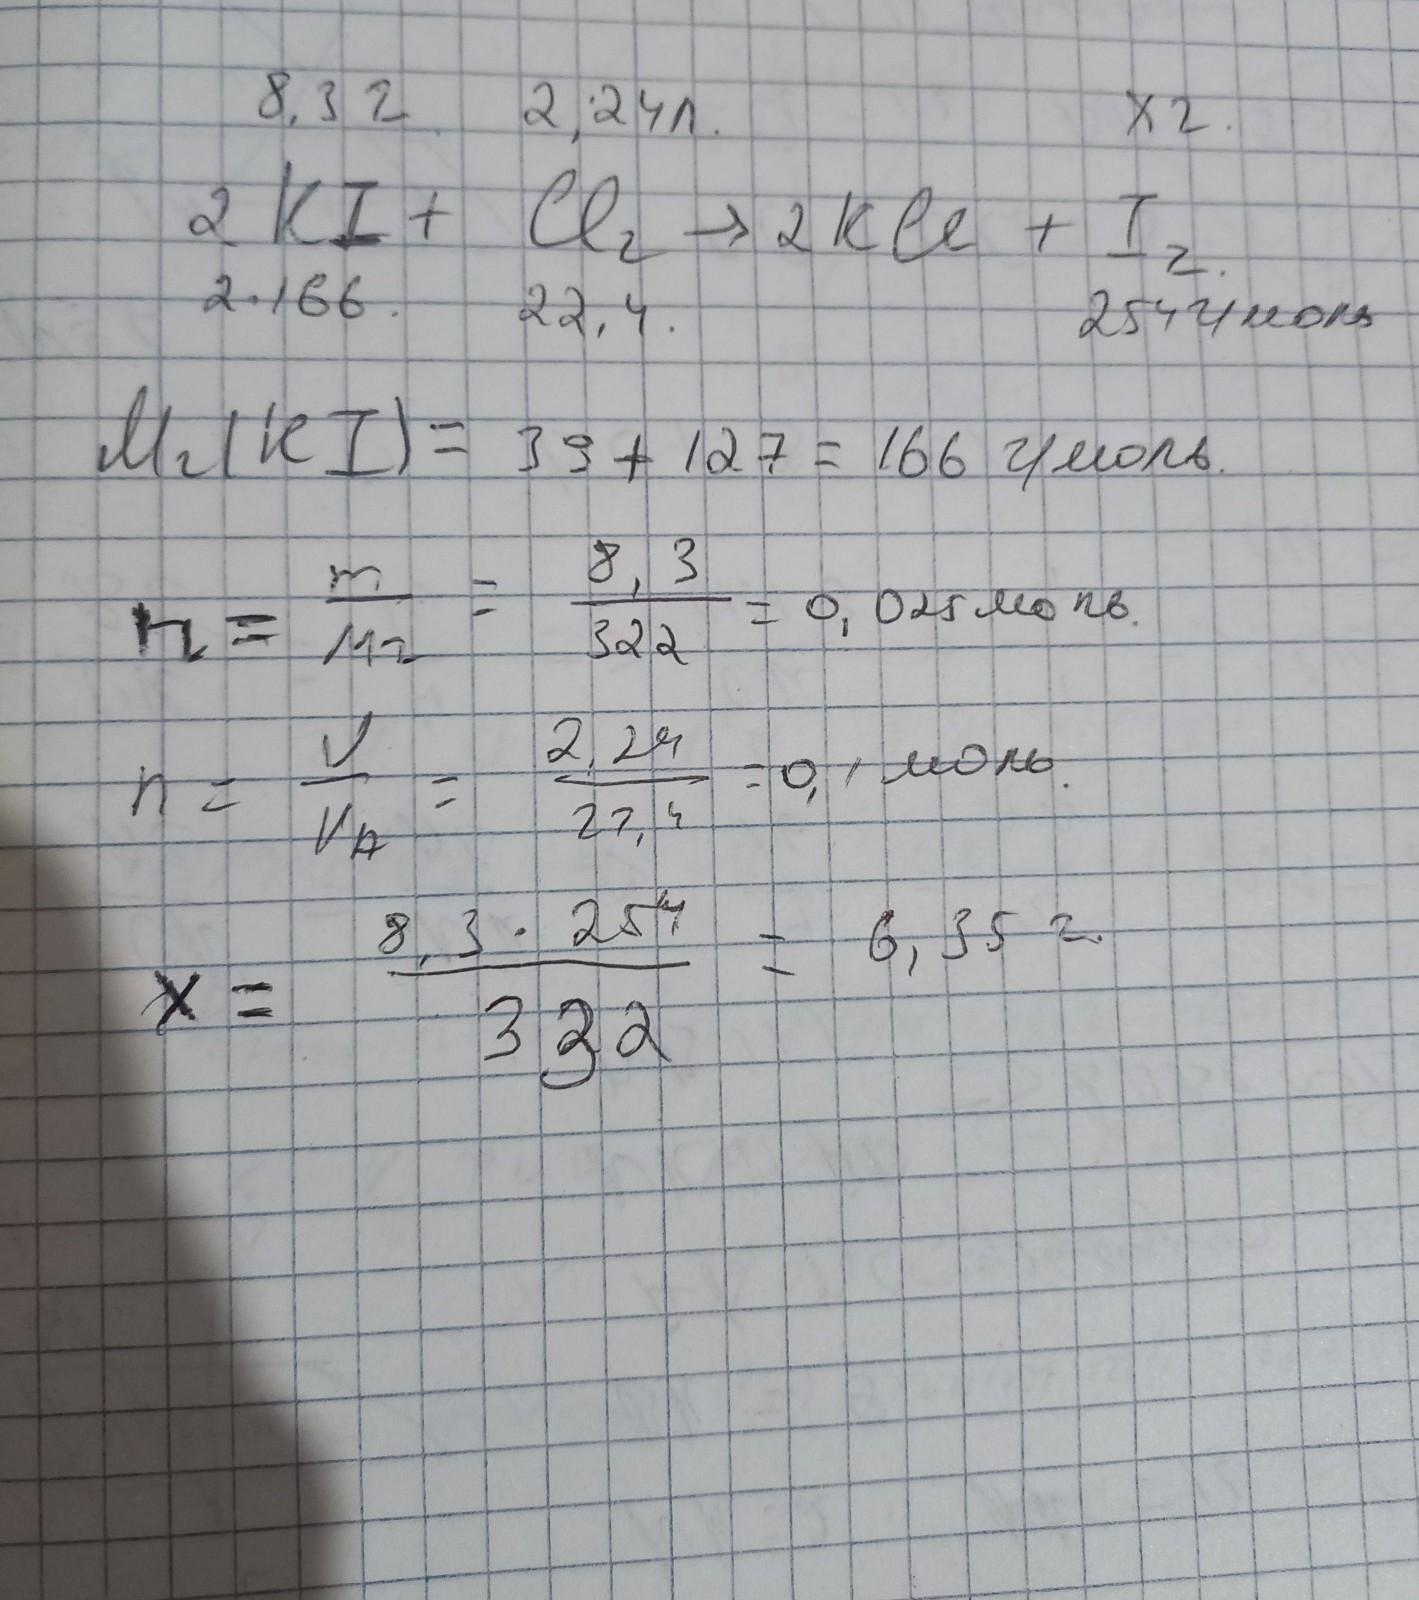 8,3 г 2,24л. x г.
2 KI + Cl₂ → 2KCl + I₂.
2·166. 22,4. 254 г/моль
Mr(KI) = 39 + 127 = 166 г/моль.
n = m/Mr = 8,3/322 = 0,025 моль.
n = V/VA = 2,24/22,4 = 0,1 моль.
x = 8,3 · 254/332 = 6,35 г.